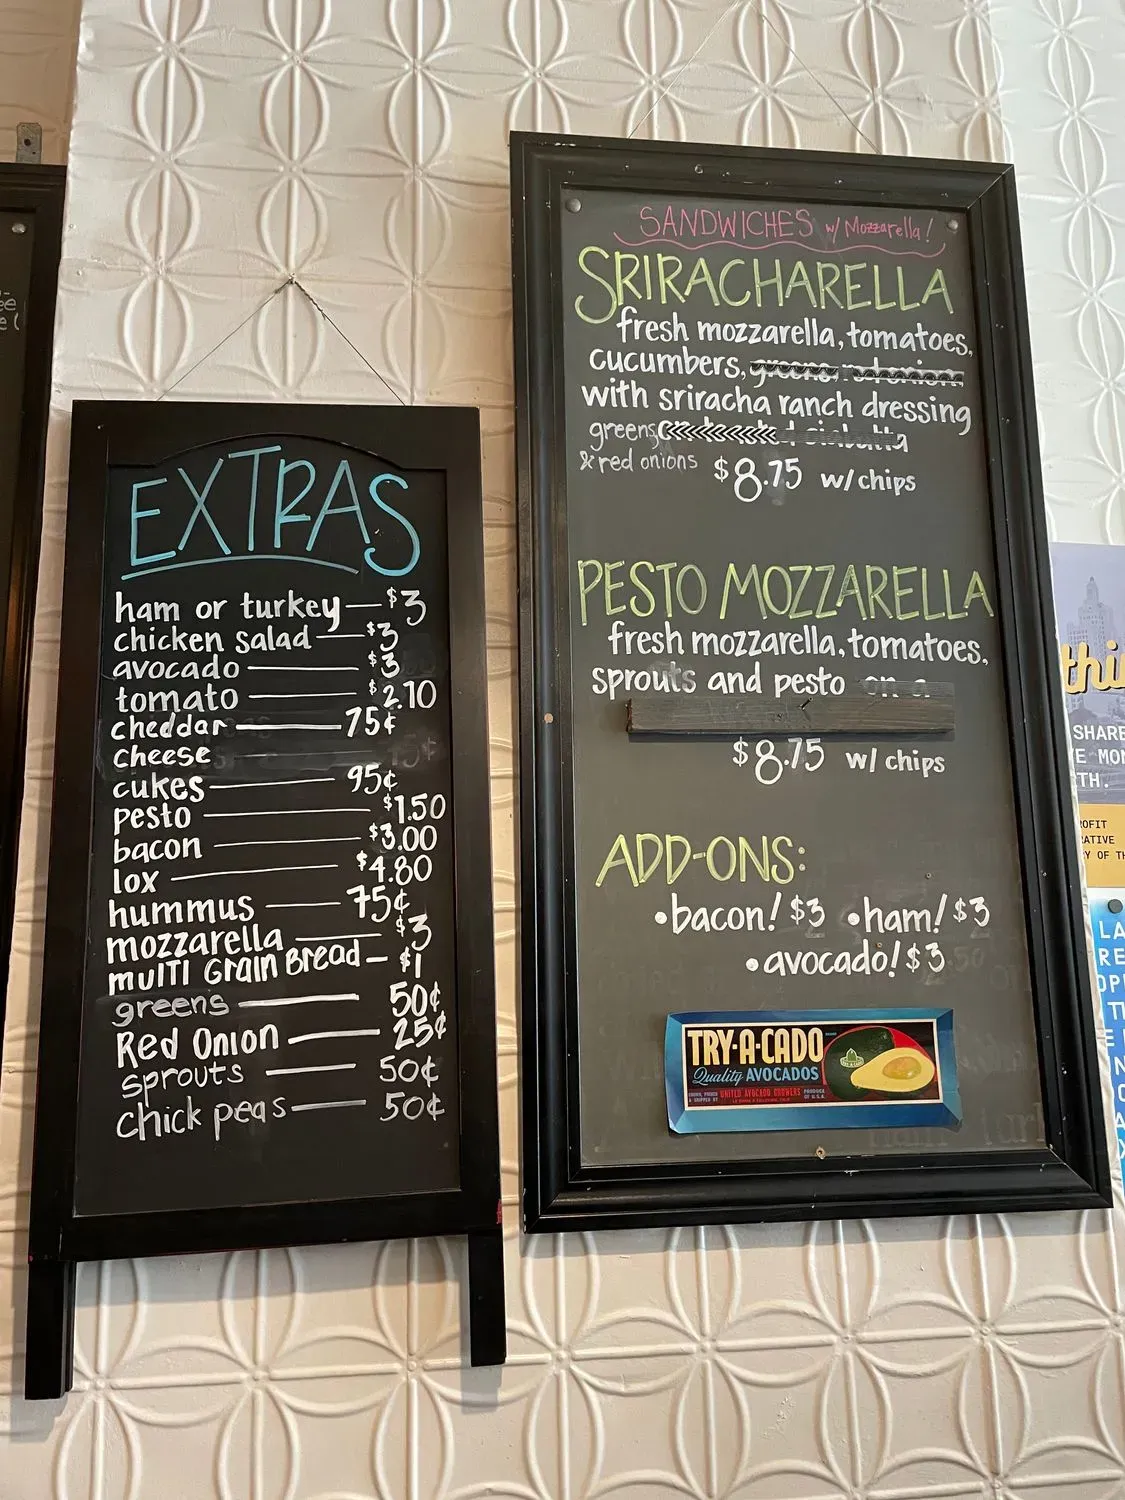 EXTRAS
ham or turkey — $3
chicken salad — $3
avocado — $3
tomato — $2.10
cheddar — 75¢
cheese
cukes — 95¢
pesto — $1.50
bacon — $3.00
lox — $4.80
hummus — 75¢
mozzarella — $3
multi Grain Bread — $1
greens — 50¢
Red Onion — 25¢
sprouts — 50¢
chick peas — 50¢
SANDWICHES w/ Mozzarella!
SRIRACHARELLA
fresh mozzarella, tomatoes,
cucumbers, greens, red onions
with sriracha ranch dressing
greens ciabatta
& red onions $8.75 w/chips
PESTO MOZZARELLA
fresh mozzarella, tomatoes,
sprouts and pesto on a
$8.75 w/ chips
ADD-ONS:
•bacon! $3 •ham! $3
•avocado! $3
TRY-A-CADO
Quality AVOCADOS
UNITED AVOCADO GROWERS
PRODUCE OF U.S.A.
thi
SHARE
E MON
TH.
OFIT
RATIVE
Y OF TH
LA
RE
OP